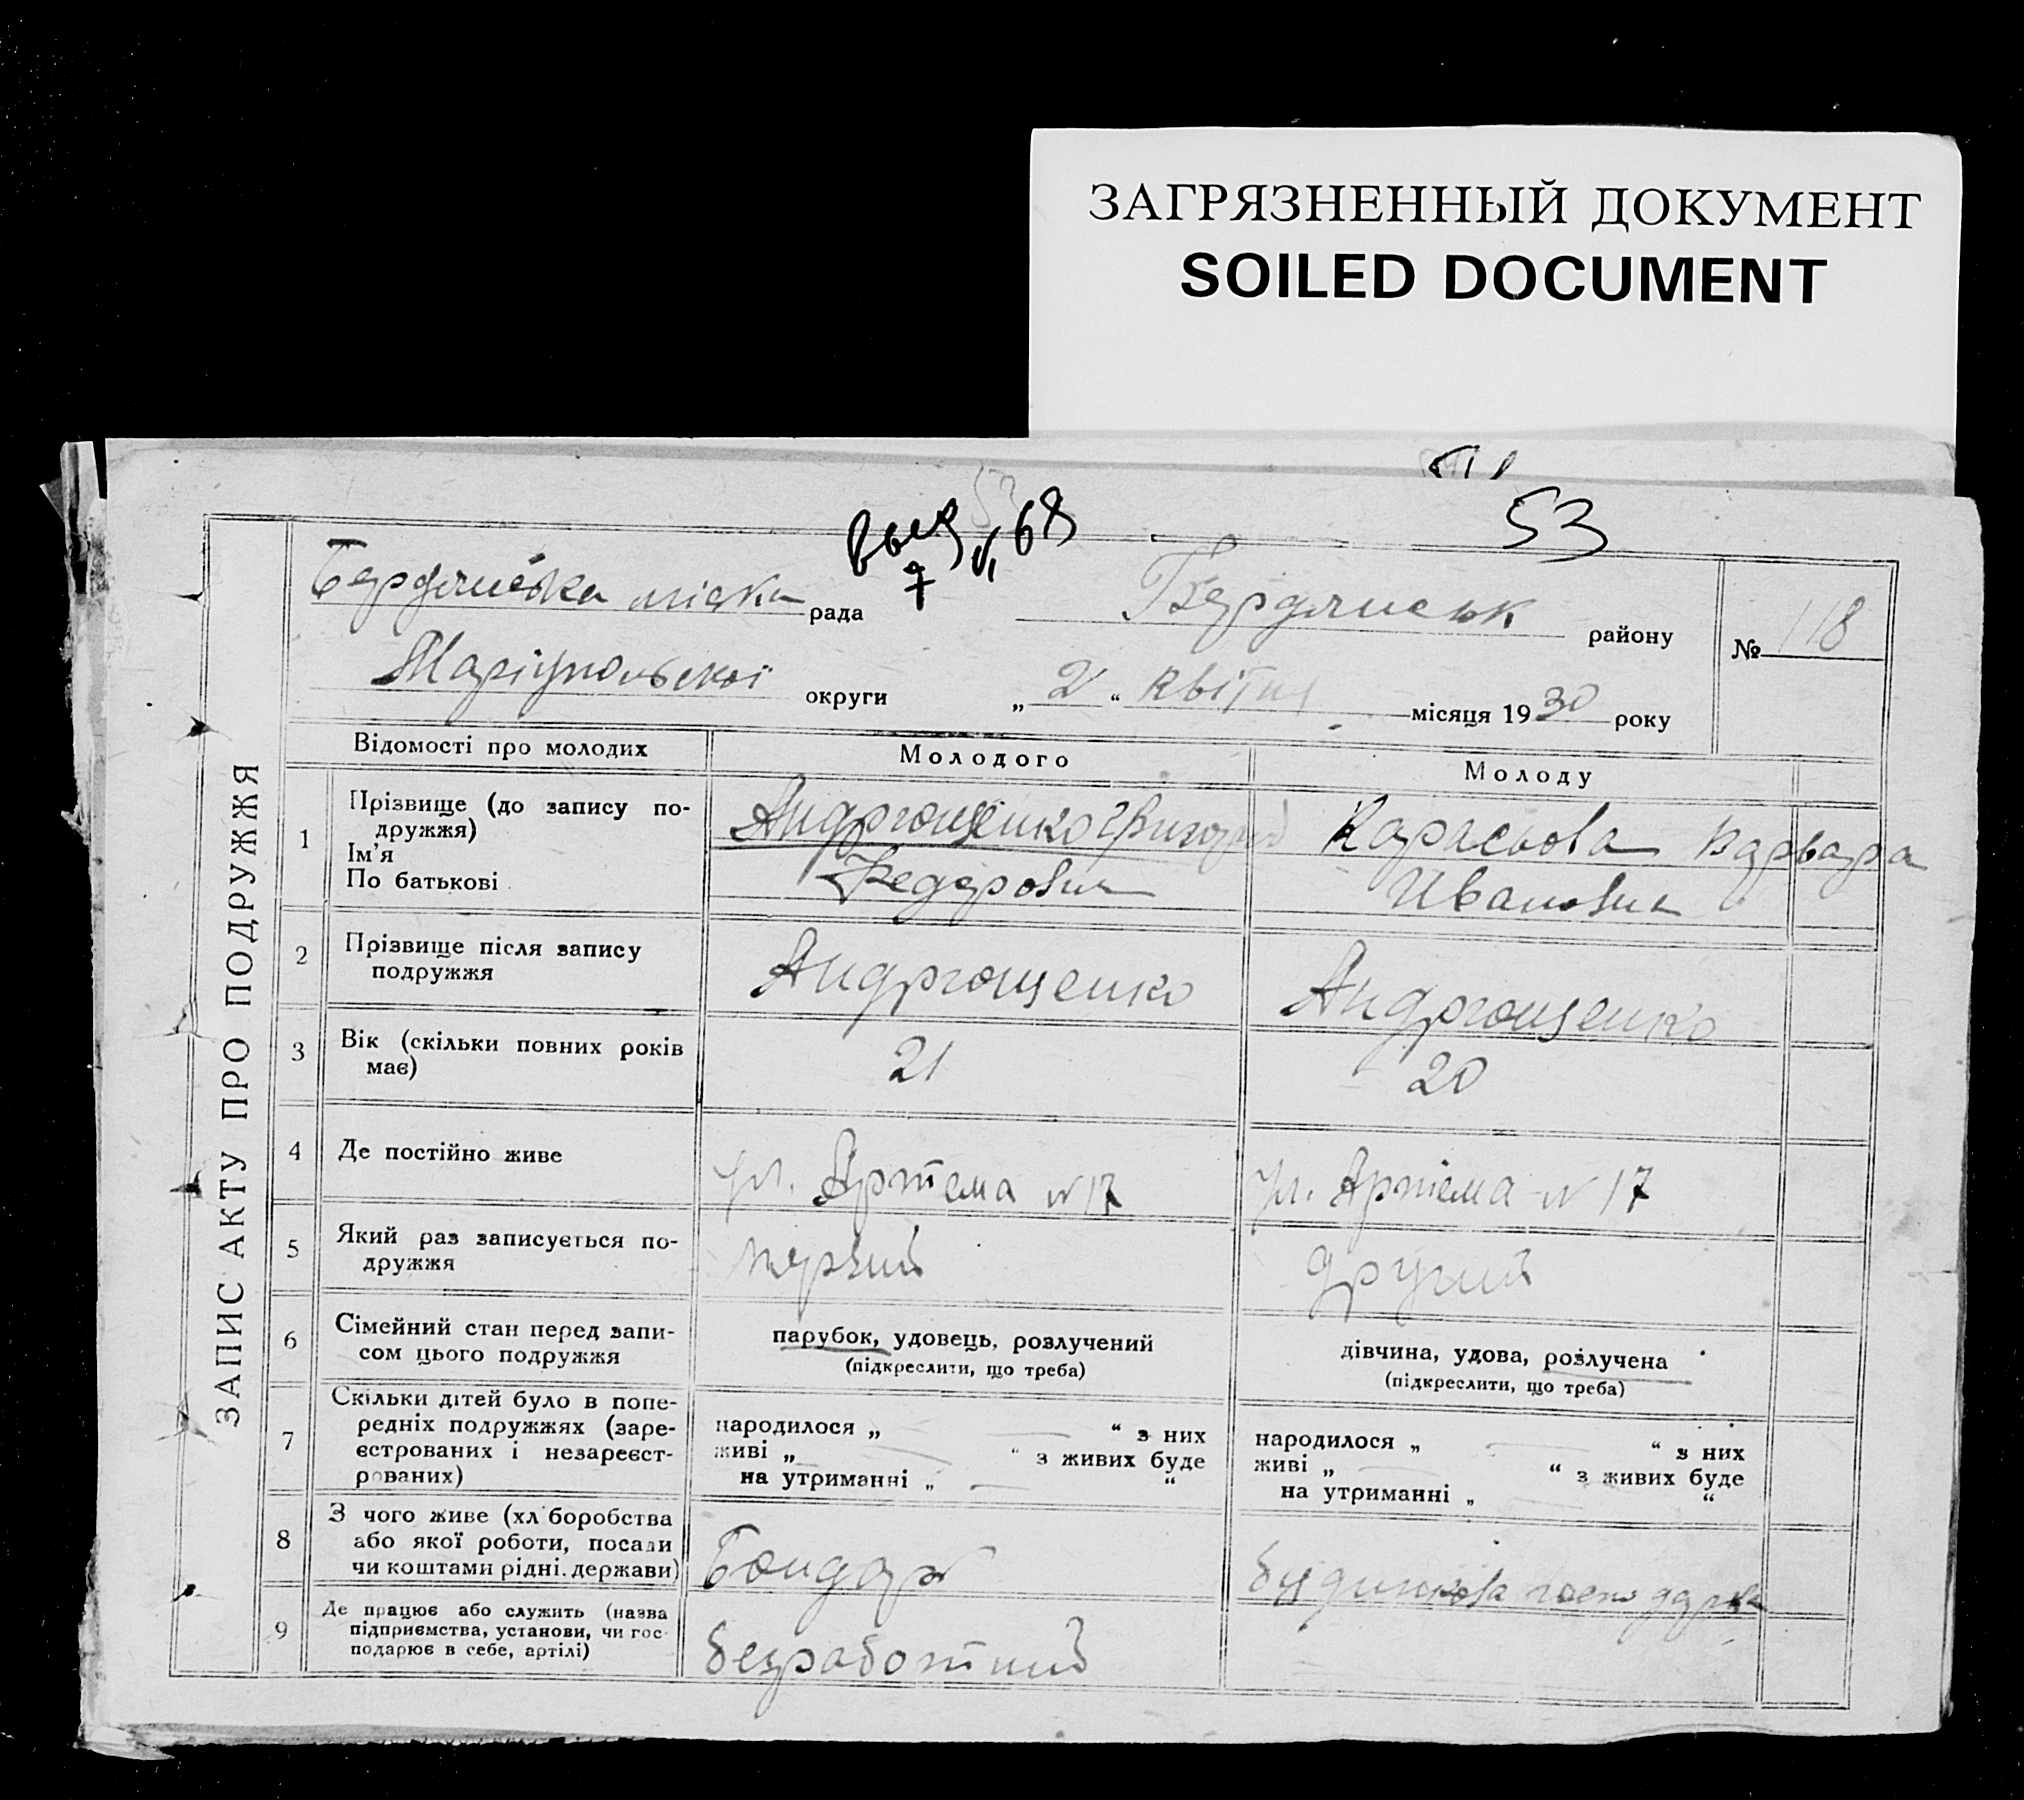 ЗАГРЯЗНЕННЫЙ ДОКУМЕНТ
SOILED DOCUMENT
53
68
Бердянська міська рада
Бердянськ району
№ 118
Маріупольської округи
„ 2 “ квітня місяця 1930 року
ЗАПИС АКТУ ПРО ПОДРУЖЖЯ
Відомості про молодих
Молодого
Молоду
1
Прізвище (до запису по-
дружжя)
Ім'я
По батькові
Андрющенко Григорий
Федорович
Варвара
Ивановна
2
Прізвище після запису
подружжя
Андрющенко
Андрющенко
3
Вік (скільки повних років
має)
21
20
4
Де постійно живе
ул. Артема № 17
ул. Артема № 17
5
Який раз записується по-
дружжя
перший
другий
6
Сімейний стан перед запи-
сом цього подружжя
парубок, удовець, розлучений
(підкреслити, що треба)
дівчина, удова, розлучена
(підкреслити, що треба)
7
Скільки дітей було в попе-
редніх подружжях (заре-
єстрованих і незареєст-
рованих)
народилося „ — “ з них
живі „ — “ з живих буде
на утриманні „ — “
народилося „ — “ з них
живі „ — “ з живих буде
на утриманні „ — “
8
З чого живе (хліборобства
або якої роботи, посади
чи коштами рідні. держави)
Бондарь
9
Де працює або служить (назва
підприємства, установи, чи гос-
подарює в себе, артілі)
безработний